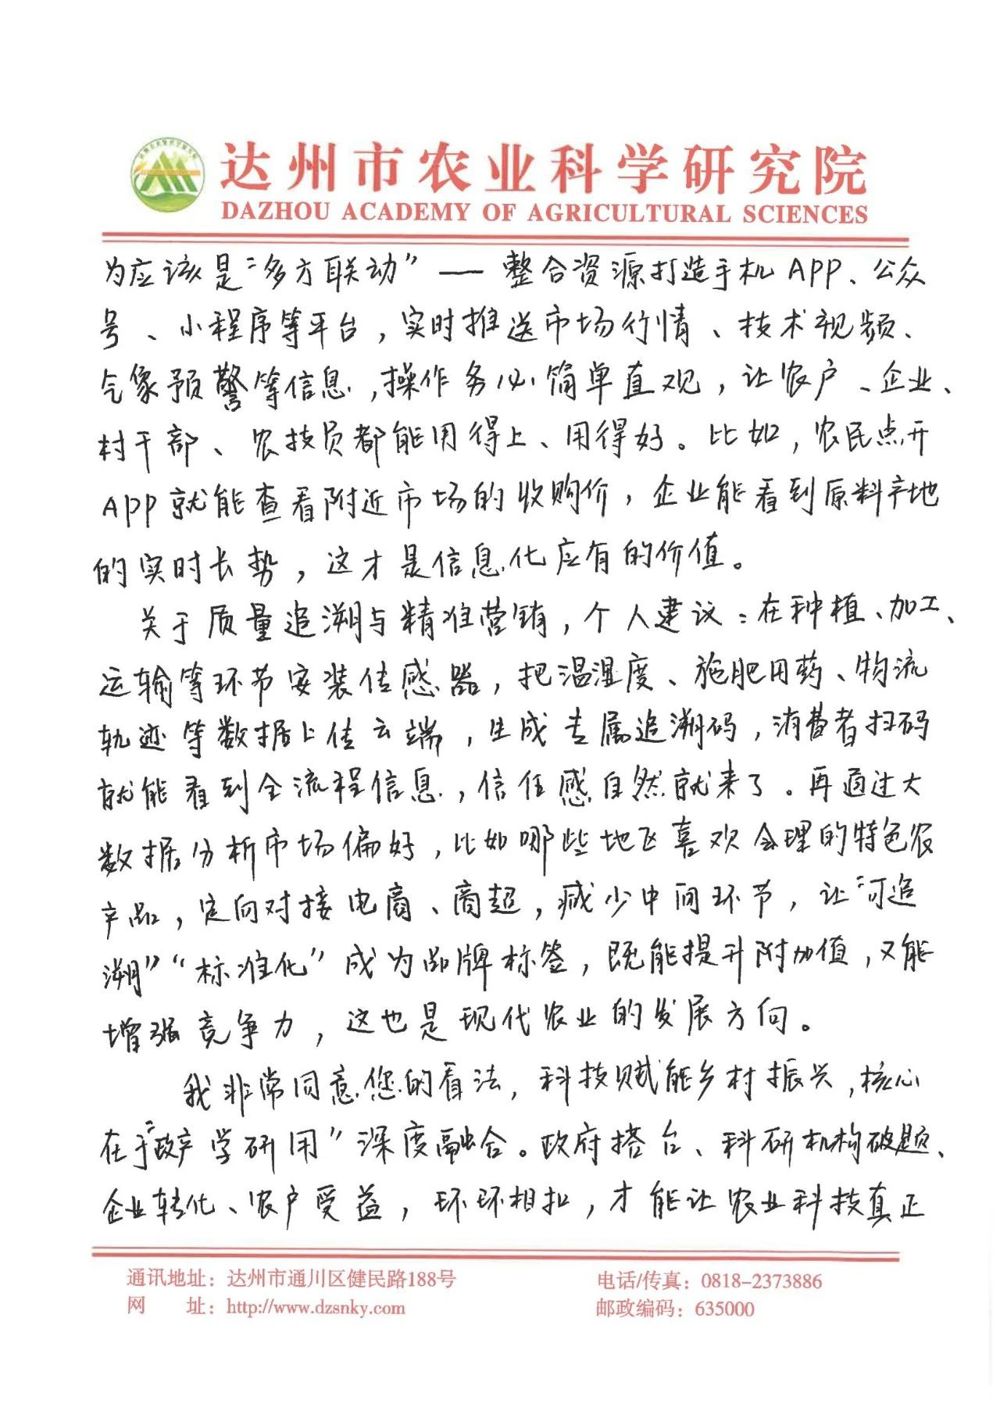 达州市农业科学研究院
DAZHOU ACADEMY OF AGRICULTURAL SCIENCES
为应该是“多方联动”——整合资源打造手机APP、公众
号、小程序等平台，实时推送市场行情、技术视频、
气象预警等信息，操作务必简单直观，让农户、企业、
村干部、农技员都能用得上、用得好。比如，农民点开
APP就能查看附近市场的收购价，企业能看到原料产地
的实时长势，这才是信息化应有的价值。
关于质量追溯与精准营销，个人建议：在种植、加工、
运输等环节安装传感器，把温湿度、施肥用药、物流
轨迹等数据上传云端，生成专属追溯码，消费者扫码
就能看到全流程信息，信任感自然就来了。再通过大
数据分析市场偏好，比如哪些地区喜欢合理的特色农
产品，定向对接电商、商超，减少中间环节，让“可追
溯”“标准化”成为品牌标签，既能提升附加值，又能
增强竞争力，这也是现代农业的发展方向。
我非常同意您的看法，科技赋能乡村振兴，核心
在于“政产学研用”深度融合。政府搭台、科研机构破题、
企业转化、农户受益，环环相扣，才能让农业科技真正
通讯地址：达州市通川区健民路188号
电话/传真：0818-2373886
网 址：http://www.dzsnky.com
邮政编码：635000